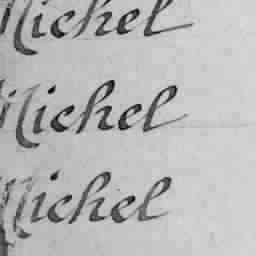 Michel
Michel
Michel